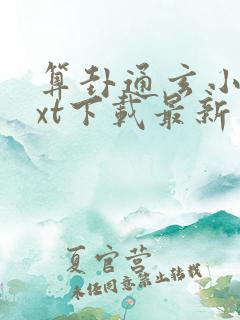 算卦通玄小
xt下载最新
夏官营
未经同意禁止转载